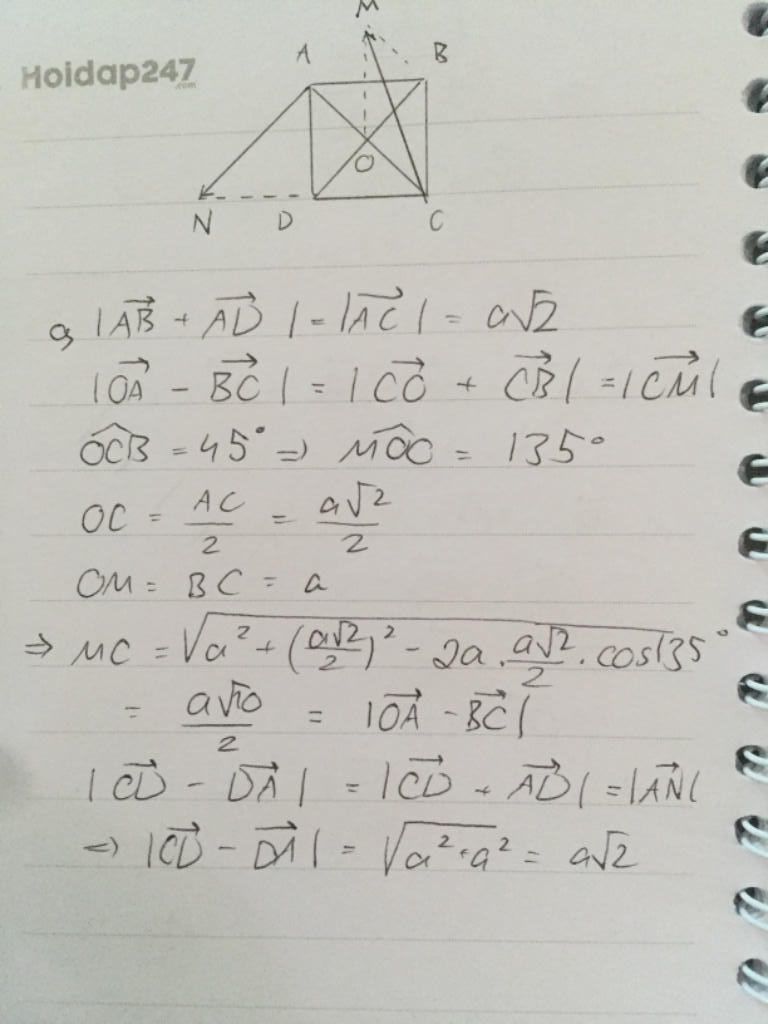 M
Hoidap247
.com
A B
O
N D C
a, |AB⃗ + AD⃗| = |AC⃗| = a√2
|OA⃗ - BC⃗| = |CO⃗ + CB⃗| = |CM⃗|
OCB̂ = 45° => MOĈ = 135°
OC = AC/2 = a√2/2
OM = BC = a
=> MC = √(a² + (a√2/2)² - 2a . a√2/2 . cos135°)
= a√10/2 = |OA⃗ - BC⃗|
|CD⃗ - DA⃗| = |CD⃗ + AD⃗| = |AN⃗|
=> |CD⃗ - DA⃗| = √(a² + a²) = a√2